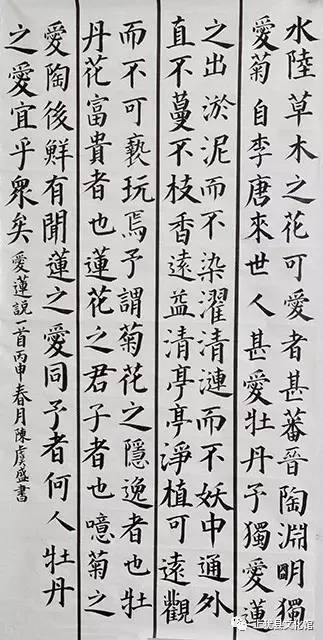 水陸草木之花可愛者甚蕃晉陶淵明獨
愛菊自李唐來世人甚愛牡丹予獨愛蓮
之出淤泥而不染濯清漣而不妖中通外
直不蔓不枝香遠益清亭亭淨植可遠觀
而不可褻玩焉予謂菊花之隱逸者也牡
丹花富貴者也蓮花之君子者也噫菊之
愛陶後鮮有聞蓮之愛同予者何人牡丹
之愛宜乎衆矣愛蓮說一首丙申春月陳虞盛書
县文化馆